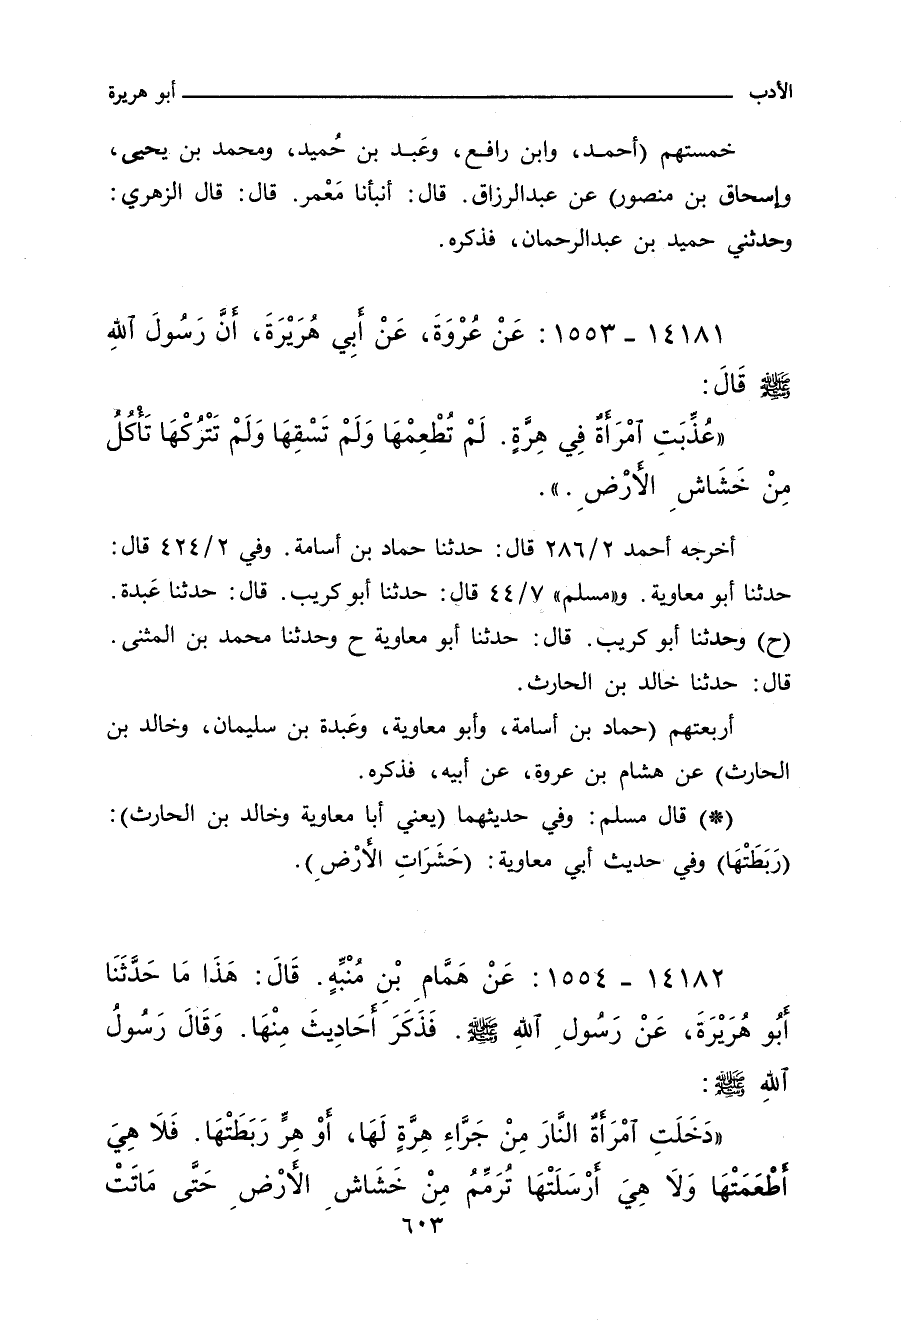 الأدب ــــــــــ أبو هريرة
خمستهم (أحمـد، وابن رافـع، وعَبـد بن حُميد، ومحمد بن يحيى،
وإسحاق بن منصور) عن عبدالرزاق. قال: أنبأنا مَعْمر. قال: قال الزهري:
وحدثني حميد بن عبدالرحمان، فذكره.
١٤١٨١ ـ ١٥٥٣: عَنْ عُرْوَةَ، عَنْ أَبِي هُرَيْرَةَ، أَنَّ رَسُولَ ٱللهِ
ﷺ قَالَ:
«عُذِّبَتِ ٱمْرَأَةٌ فِي هِرَّةٍ. لَمْ تُطْعِمْهَا وَلَمْ تَسْقِهَا وَلَمْ تَتْرُكْهَا تَأْكُلُ
مِنْ خَشَاشِ الأَرْضِ.».
أخرجه أحمد ٢٨٦/٢ قال: حدثنا حماد بن أسامة. وفي ٤٢٤/٢ قال:
حدثنا أبو معاوية. و«مسلم» ٤٤/٧ قال: حدثنا أبو كريب. قال: حدثنا عَبدة.
(ح) وحدثنا أبو كريب. قال: حدثنا أبو معاوية ح وحدثنا محمد بن المثنى.
قال: حدثنا خالد بن الحارث.
أربعتهم (حماد بن أسامة، وأبو معاوية، وعَبدة بن سليمان، وخالد بن
الحارث) عن هشام بن عروة، عن أبيه، فذكره.
(*) قال مسلم: وفي حديثهما (يعني أبا معاوية وخالد بن الحارث):
(رَبَطَتْهَا) وفي حديث أبي معاوية: (حَشَرَاتِ الأَرْضِ).
١٤١٨٢ ـ ١٥٥٤: عَنْ هَمَّامِ بْنِ مُنَبِّهٍ. قَالَ: هَذَا مَا حَدَّثَنَا
أَبُو هُرَيْرَةَ، عَنْ رَسُولِ ٱللهِ ﷺ. فَذَكَرَ أَحَادِيثَ مِنْهَا. وَقَالَ رَسُولُ
ٱللهِ ﷺ:
«دَخَلَتِ ٱمْرَأَةٌ النَّارَ مِنْ جَرَّاءِ هِرَّةٍ لَهَا، أَوْ هِرٍّ رَبَطَتْهَا. فَلَا هِيَ
أَطْعَمَتْهَا وَلَا هِيَ أَرْسَلَتْهَا تُرَمِّمُ مِنْ خَشَاشِ الأَرْضِ حَتَّى مَاتَتْ
٦٠٣